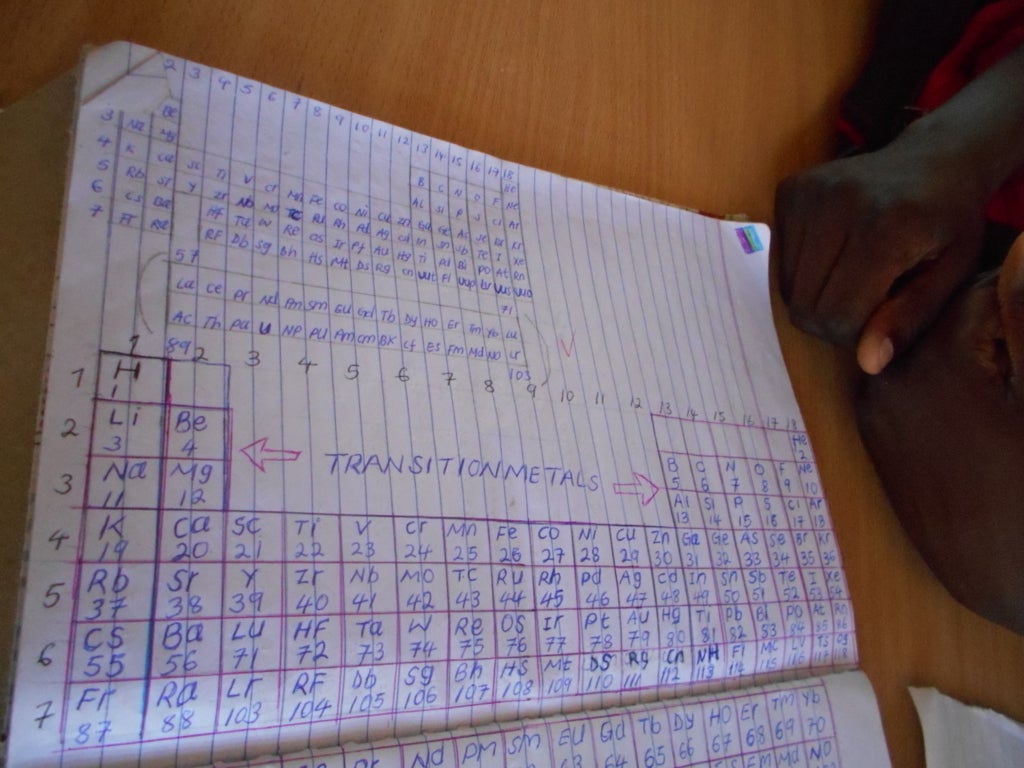 2 3 4 5 6 7 8 9 10 11 12 13 14 15 16 17 18
3 Na Mg
4 K Sc Ti V Cr Mn Fe Co Ni Cu Zn
5 Rb Sr Y Zr Nb Mo
6 Cs Ba Hf Ta W Re Os Ir Pt Au Hg
7 Fr Ra RF Db Sg Bh HS Mt DS Rg
B C N O F Ne
Al Si P S Cl Ar
57 71
La Ce Pr Nd Pm Sm Eu Gd Tb Dy HO Er Tm Yb Lu
AC Th Pa U NP PU Am Cm BK Cf ES Fm Md NO Lr
89 103
1 2 3 4 5 6 7 8 9 10 11 12 13 14 15 16 17 18
1 H He
1 2
2 Li Be B C N O F Ne
3 4 5 6 7 8 9 10
TRANSITIONMETALS
3 Na Mg Al Si P S Cl Ar
11 12 13 14 15 16 17 18
4 K Ca SC Ti V Cr Mn Fe CO Ni CU Zn Ga Ge AS Se Br Kr
19 20 21 22 23 24 25 26 27 28 29 30 31 32 33 34 35 36
5 Rb Sr Y Zr Nb MO TC RU Rh Pd Ag Cd In Sn Sb Te I Xe
37 38 39 40 41 42 43 44 45 46 47 48 49 50 51 52 53 54
6 CS Ba LU HF Ta W Re OS Ir Pt AU Hg Tl Pb Bi PO At Rn
55 56 71 72 73 74 75 76 77 78 79 80 81 82 83 84 85 86
7 Fr Ra Lr RF Db Sg Bh HS Mt DS Rg Cn NH Fl MC
87 88 103 104 105 106 107 108 109 110 111 112 113 114 115 116
Nd PM SM EU Gd Tb DY HO Er TM Yb
63 64 65 66 67 68 69 70
Md NO